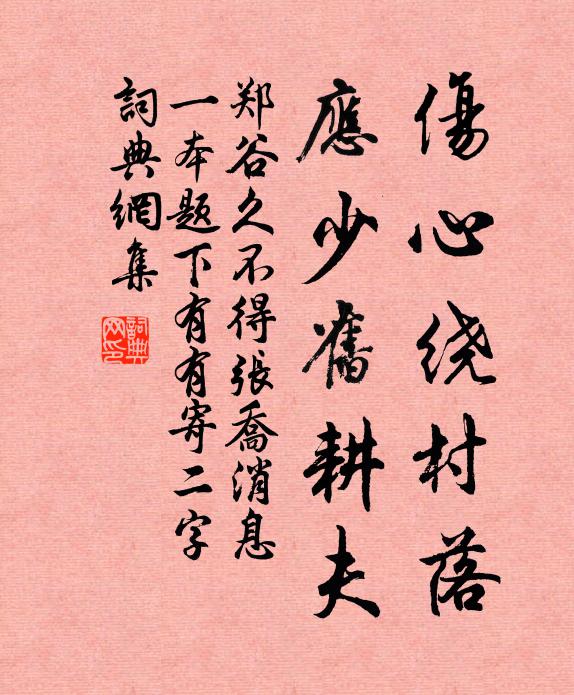 傷心绕村落
應少舊耕夫
郑谷久不得張喬消息
一本题下有有寄二字
詞典網集
詞典网印